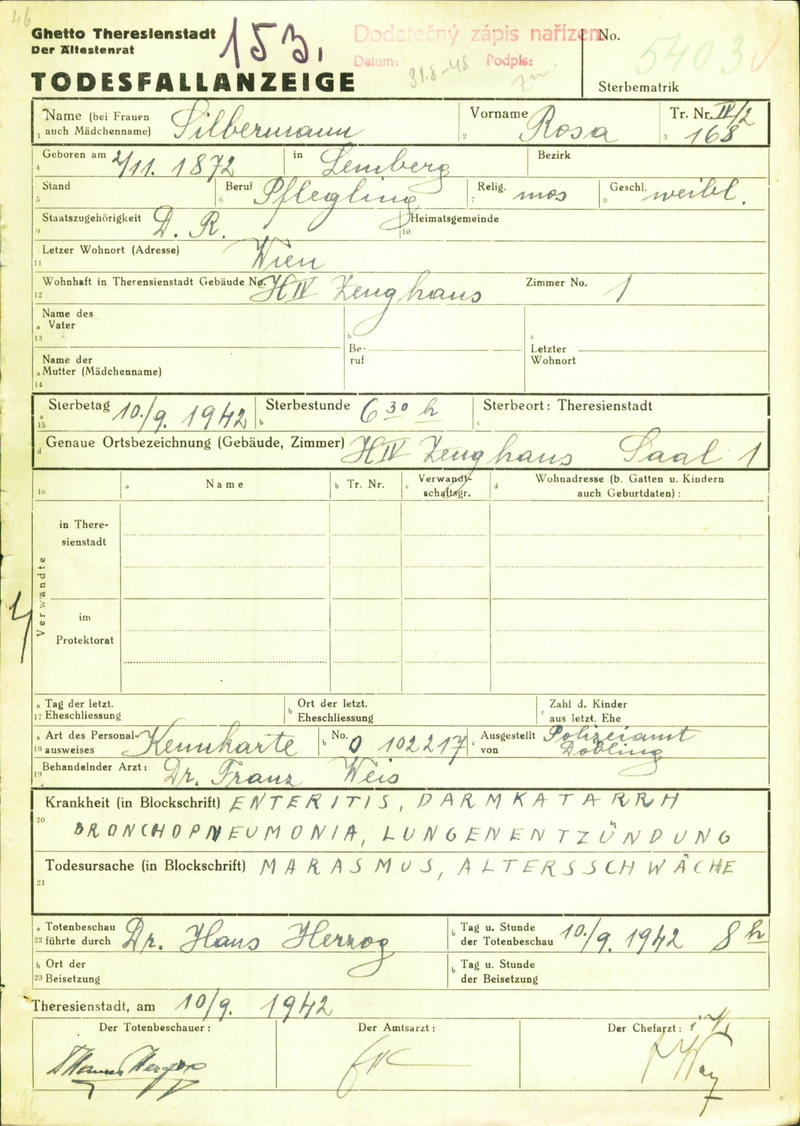 46
Ghetto Theresienstadt
Der Ältestenrat
153.
Dodatečný zápis nařízen
Datum: 31.8-48 Podpis:
No. 5403
Sterbematrik
TODESFALLANZEIGE
Name (bei Frauen auch Mädchenname) Silbermann
1
Vorname Rosa
2
Tr. Nr. IV/2 168
3
Geboren am 2/11. 1872 in Lemberg Bezirk
4
Stand Beruf Pflegling Relig. mos Geschl. weibl.
5 6 7 8
Staatszugehörigkeit D. R. Heimatsgemeinde
9 10
Letzer Wohnort (Adresse) Wien
11
Wohnhaft in Theresienstadt Gebäude No. H IV Zeughaus Zimmer No. 1
12
Name des
a Vater
13
b Beruf
c Letzter Wohnort
Name der
a Mutter (Mädchenname)
14
a Sterbetag 10./9. 1942 b Sterbestunde 6 30 h c Sterbeort: Theresienstadt
15
d Genaue Ortsbezeichnung (Gebäude, Zimmer) H IV Zeughaus Saal 1
16 a Name b Tr. Nr. c Verwandtschaftsgr. d Wohnadresse (b. Gatten u. Kindern auch Geburtdaten):
Verwandte
in Theresienstadt
im Protektorat
a Tag der letzt.
17 Eheschliessung
b Ort der letzt.
Eheschliessung
c Zahl d. Kinder
aus letzt. Ehe
a Art des Personal-
18 ausweises Kennkarte b No. 0 102217 c Ausgestellt von Polizeiamt Döbling
19 Behandelnder Arzt: Dr. Franz Weis
Krankheit (in Blockschrift) ENTERITIS, DARMKATARRH
20 BRONCHOPNEUMONIA, LUNGENENTZÜNDUNG
Todesursache (in Blockschrift) MARASMUS, ALTERSSCHWÄCHE
21
a Totenbeschau
22 führte durch Dr. Hans Herzog
b Tag u. Stunde
der Totenbeschau 10./9. 1942 8 h
b Ort der
23 Beisetzung
b Tag u. Stunde
der Beisetzung
Theresienstadt, am 10/9. 1942
Der Totenbeschauer: Der Amtsarzt: Der Chefarzt: